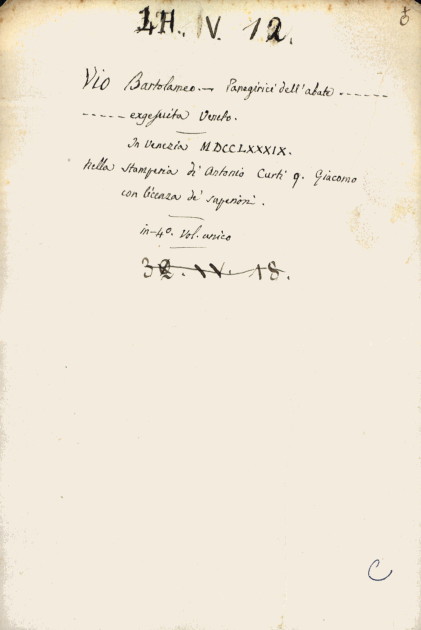 IV. 12.
Vio Bartolomeo.— Panegirici dell'abate ------
----- exgesuita Veneto.
In Venezia MDCCLXXXIX.
Nella Stamperia di Antonio Curti q. Giacomo
con licenza de' superiori.
in-4º. Vol. unico
32. IV. 18.
C